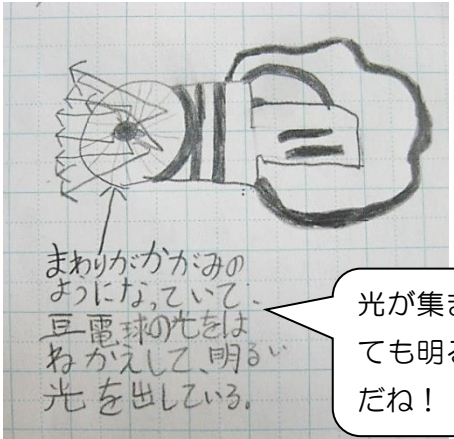 まわりがかがみの
ようになっていて、
豆電球の光をは
ねかえして、明るい
光を出している。
光が集ま
ても明る
だね！